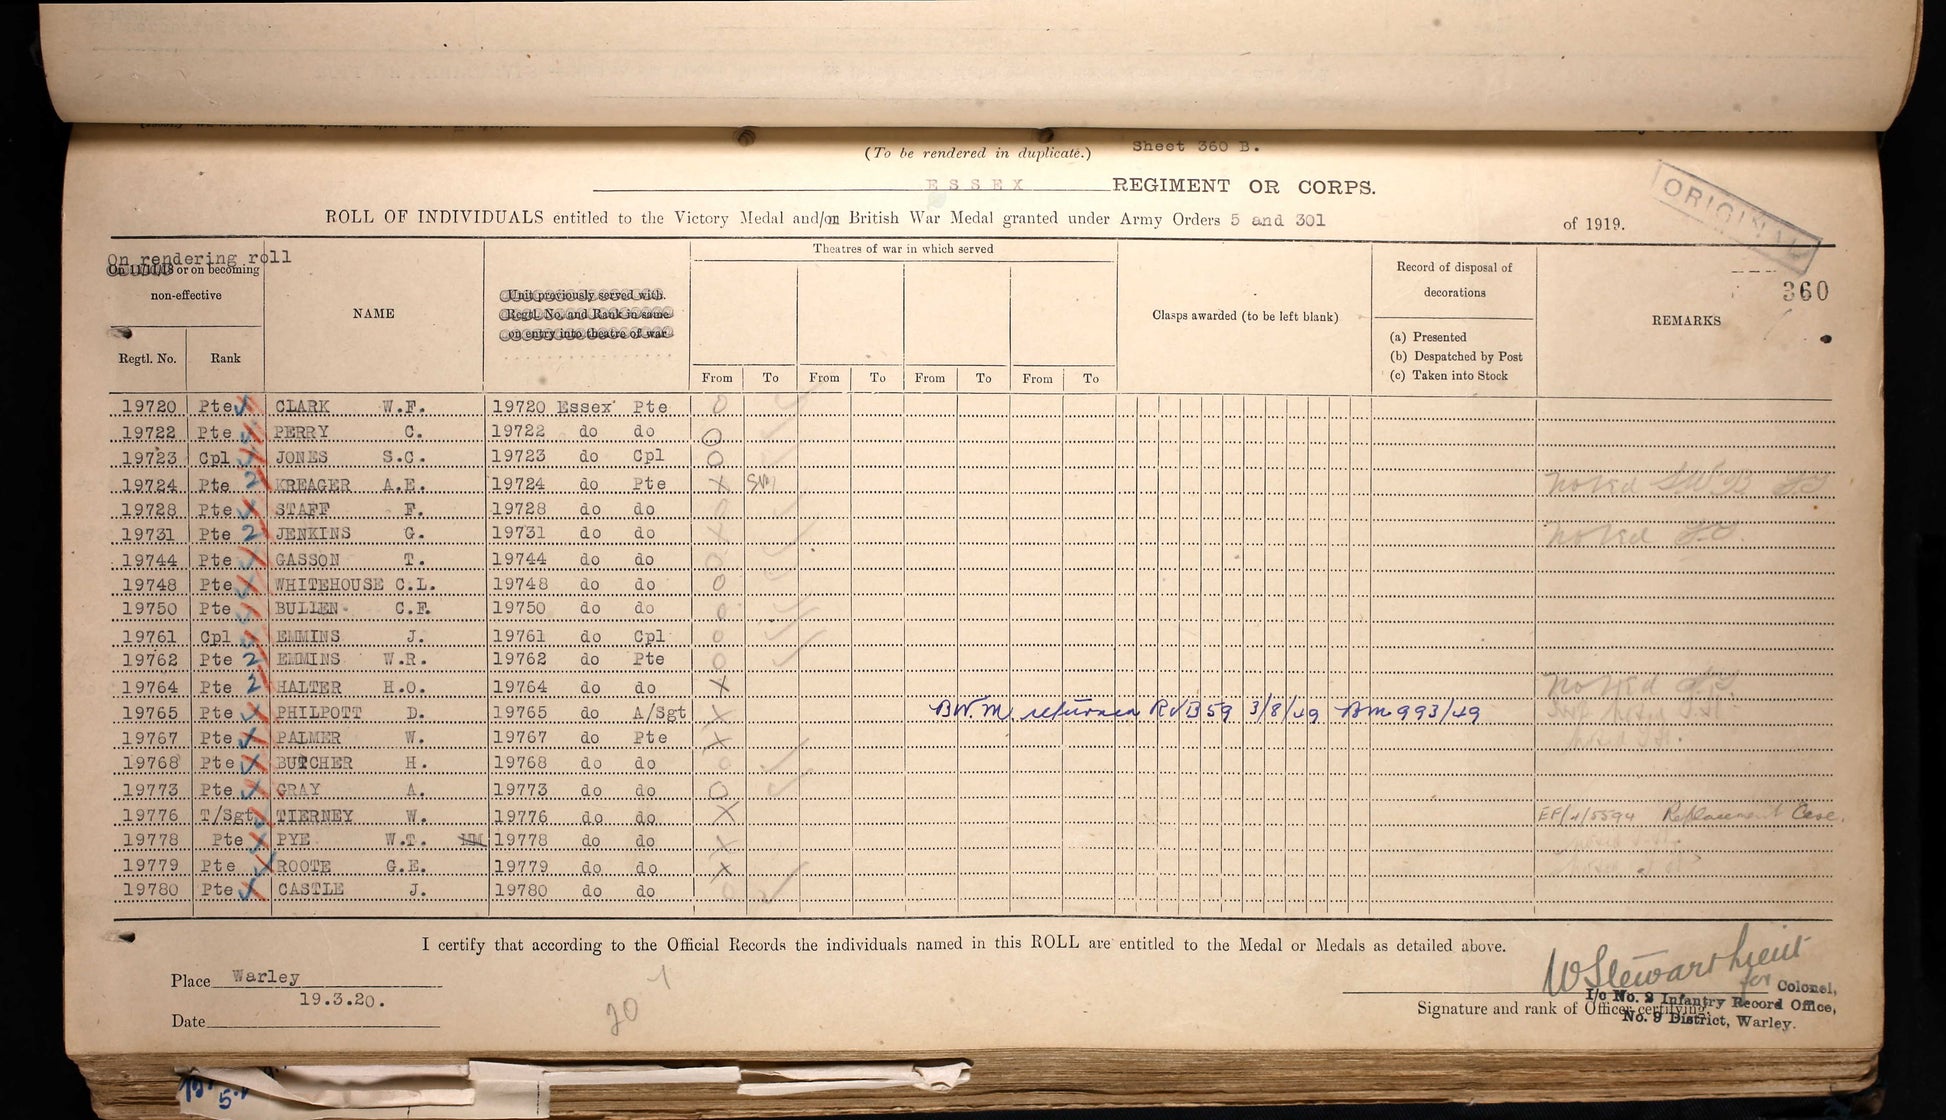 (To be rendered in duplicate.) Sheet 360 B.
ESSEX REGIMENT OR CORPS.
ORIGINAL
ROLL OF INDIVIDUALS entitled to the Victory Medal and/or British War Medal granted under Army Orders 5 and 301 of 1919.
360
On rendering roll
On 11/11/18 or on becoming
non-effective
Regtl. No. Rank
NAME
Unit previously served with.
Regtl. No. and Rank in same
on entry into theatre of war
Theatres of war in which served
From To From To From To From To
Clasps awarded (to be left blank)
Record of disposal of
decorations
(a) Presented
(b) Despatched by Post
(c) Taken into Stock
REMARKS
19720 Pte CLARK W.F. 19720 Essex Pte O
19722 Pte PERRY C. 19722 do do O
19723 Cpl JONES S.C. 19723 do Cpl O
19724 Pte 2 KREAGER A.E. 19724 do Pte X Noted SWB
19728 Pte STAFF F. 19728 do do
19731 Pte 2 JENKINS G. 19731 do do X Noted
19744 Pte GASSON T. 19744 do do O
19748 Pte WHITEHOUSE C.L. 19748 do do O
19750 Pte BULLEN C.F. 19750 do do O
19761 Cpl EMMINS J. 19761 do Cpl O
19762 Pte 2 EMMINS W.R. 19762 do Pte O
19764 Pte 2 HALTER H.O. 19764 do do X Noted
19765 Pte PHILPOTT D. 19765 do A/Sgt X BW.M returned RV/B59 3/8/49 Bm993/49
19767 Pte PALMER W. 19767 do Pte X
19768 Pte BUTCHER H. 19768 do do O
19773 Pte GRAY A. 19773 do do O
19776 T/Sgt TIERNEY W. 19776 do do X EF/4/5594 Replacement Case.
19778 Pte PYE W.T. MM 19778 do do X
19779 Pte ROOTE G.E. 19779 do do X
19780 Pte CASTLE J. 19780 do do O
I certify that according to the Official Records the individuals named in this ROLL are entitled to the Medal or Medals as detailed above.
Place Warley
19.3.20.
Date
20
W Stewart Lieut
for Colonel,
I/c No. 2 Infantry Record Office,
Signature and rank of Officer certifying.
No. 9 District, Warley.